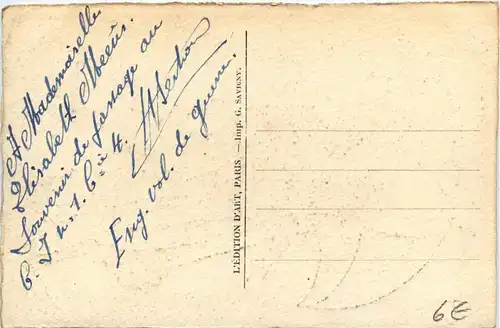 A Mademoiselle
Elisabeth Meeùs.
Souvenir de passage au
C. I. n=1. Cie 4.
Eng. vol. de guerre.
L'ÉDITION D'ART, PARIS. — Imp. G. SAVIGNY.
6€